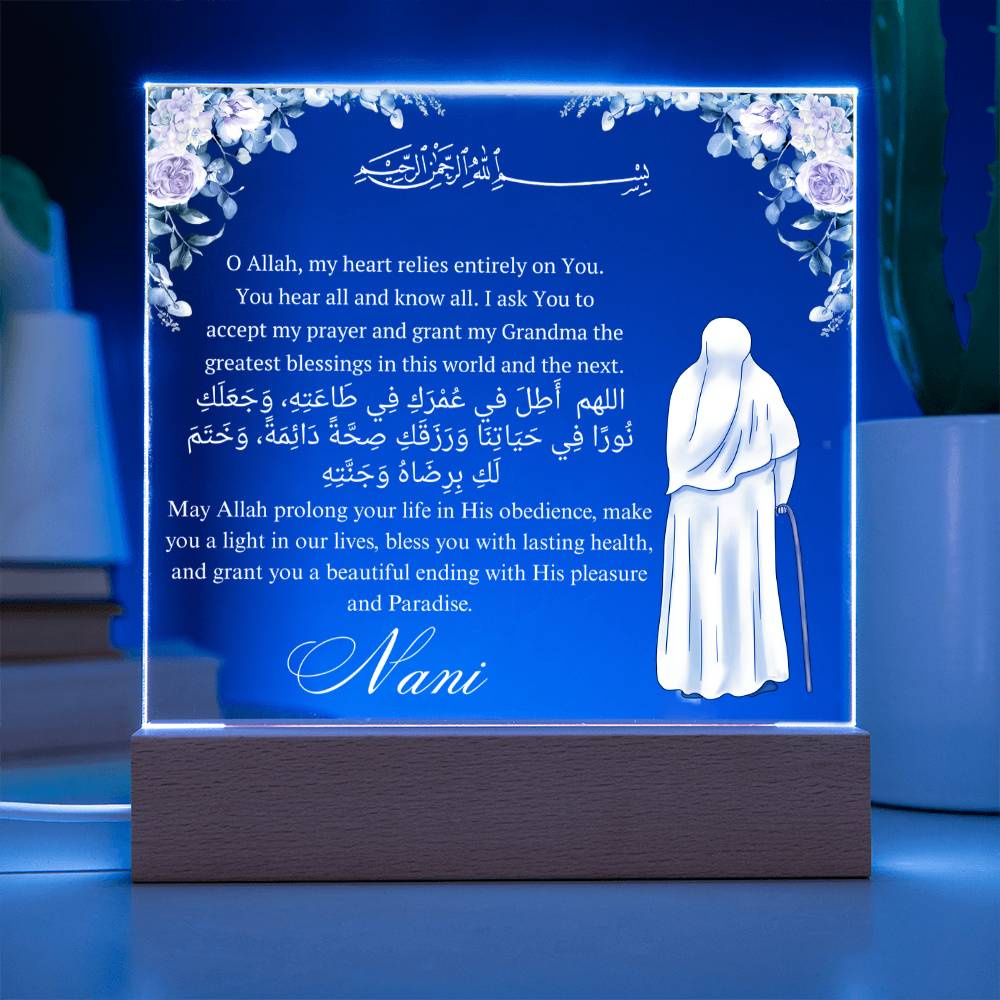 بِسْمِ ٱللَّهِ ٱلرَّحْمَٰنِ ٱلرَّحِيمِ
O Allah, my heart relies entirely on You.
You hear all and know all. I ask You to
accept my prayer and grant my Grandma the
greatest blessings in this world and the next.
اللهم أَطِلَ في عُمْرَكِ فِي طَاعَتِهِ، وَجَعَلَكِ
نُورًا فِي حَيَاتِنَا وَرَزَقَكِ صِحَّةً دَائِمَةً، وَخَتَمَ
لَكِ بِرِضَاهُ وَجَنَّتِهِ
May Allah prolong your life in His obedience, make
you a light in our lives, bless you with lasting health,
and grant you a beautiful ending with His pleasure
and Paradise.
Nani